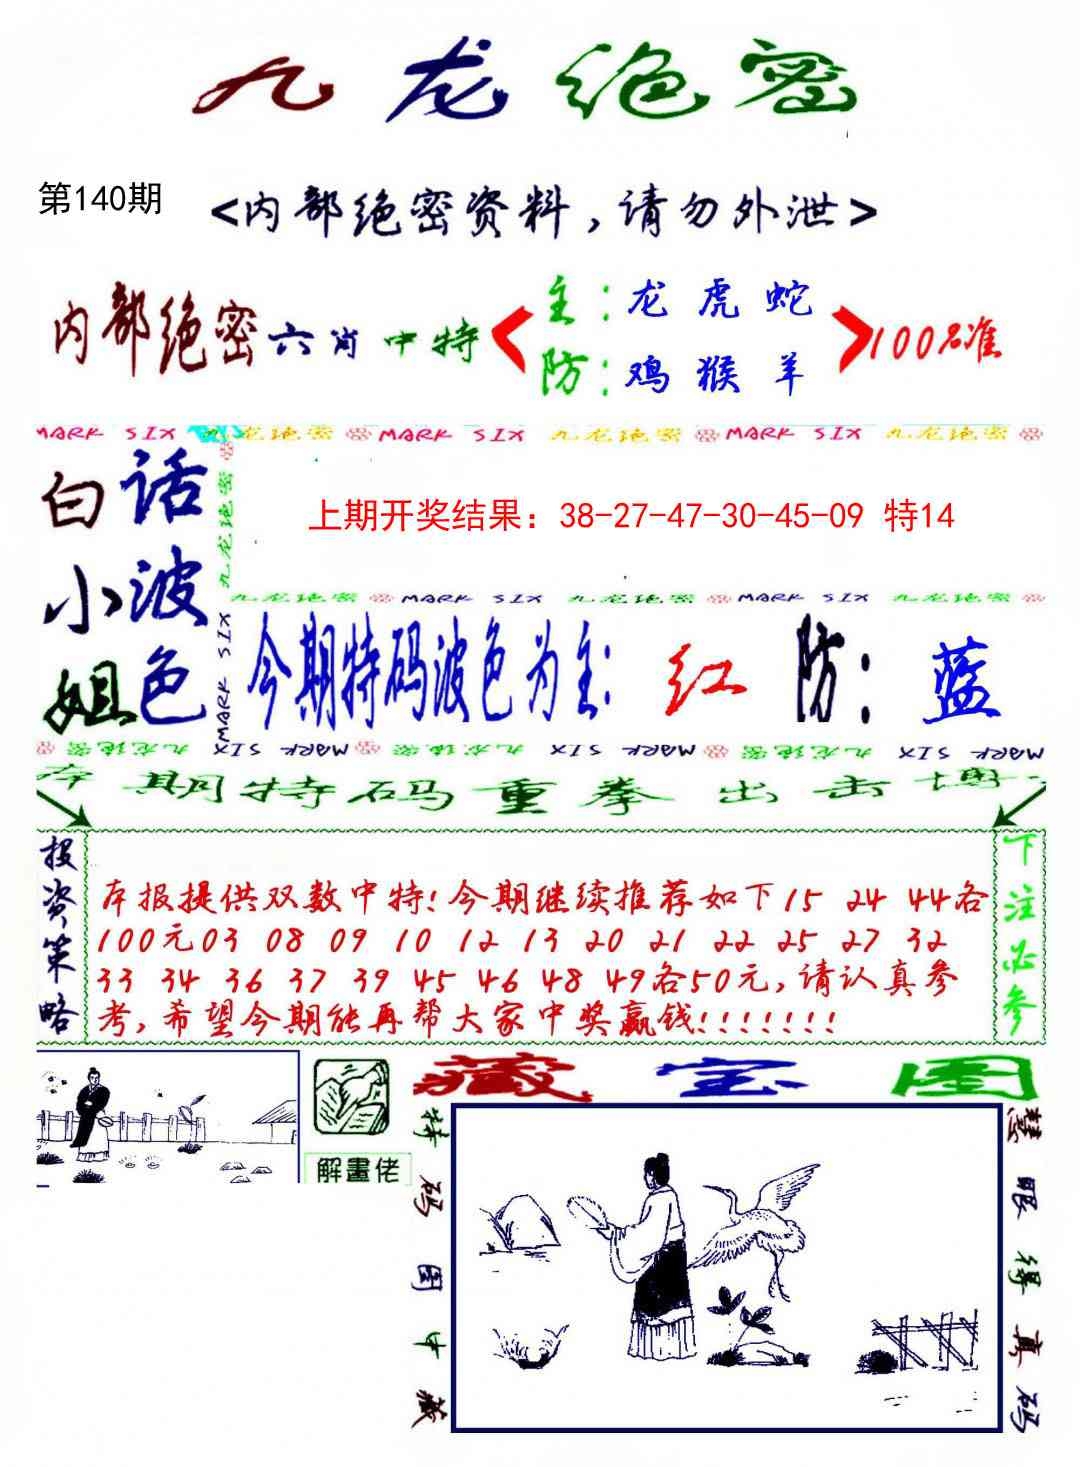 九龙绝密
第140期
<内部绝密资料,请勿外泄>
内部绝密六肖中特
主:龙 虎 蛇
防:鸡 猴 羊
100%准
MARK SIX 九龙绝密 MARK SIX 九龙绝密 MARK SIX 九龙绝密
白话
小波
姐色
九龙绝密
MARK SIX
MARK SIX
上期开奖结果：38-27-47-30-45-09 特14
九龙绝密 MARK SIX 九龙绝密 MARK SIX 九龙绝密
今期特码波色为主: 红 防: 蓝
九龙绝密 MARK SIX 九龙绝密 MARK SIX 九龙绝密 MARK SIX
本期特码重拳出击博
投资策略
本报提供双数中特!今期继续推荐如下15 24 44各
100元03 08 09 10 12 13 20 21 22 25 27 32
33 34 36 37 39 45 46 48 49各50元,请认真参
考,希望今期能再帮大家中奖赢钱!!!!!!!
下注必参
解畫佬
藏宝图
特码图中藏
慧眼得真码